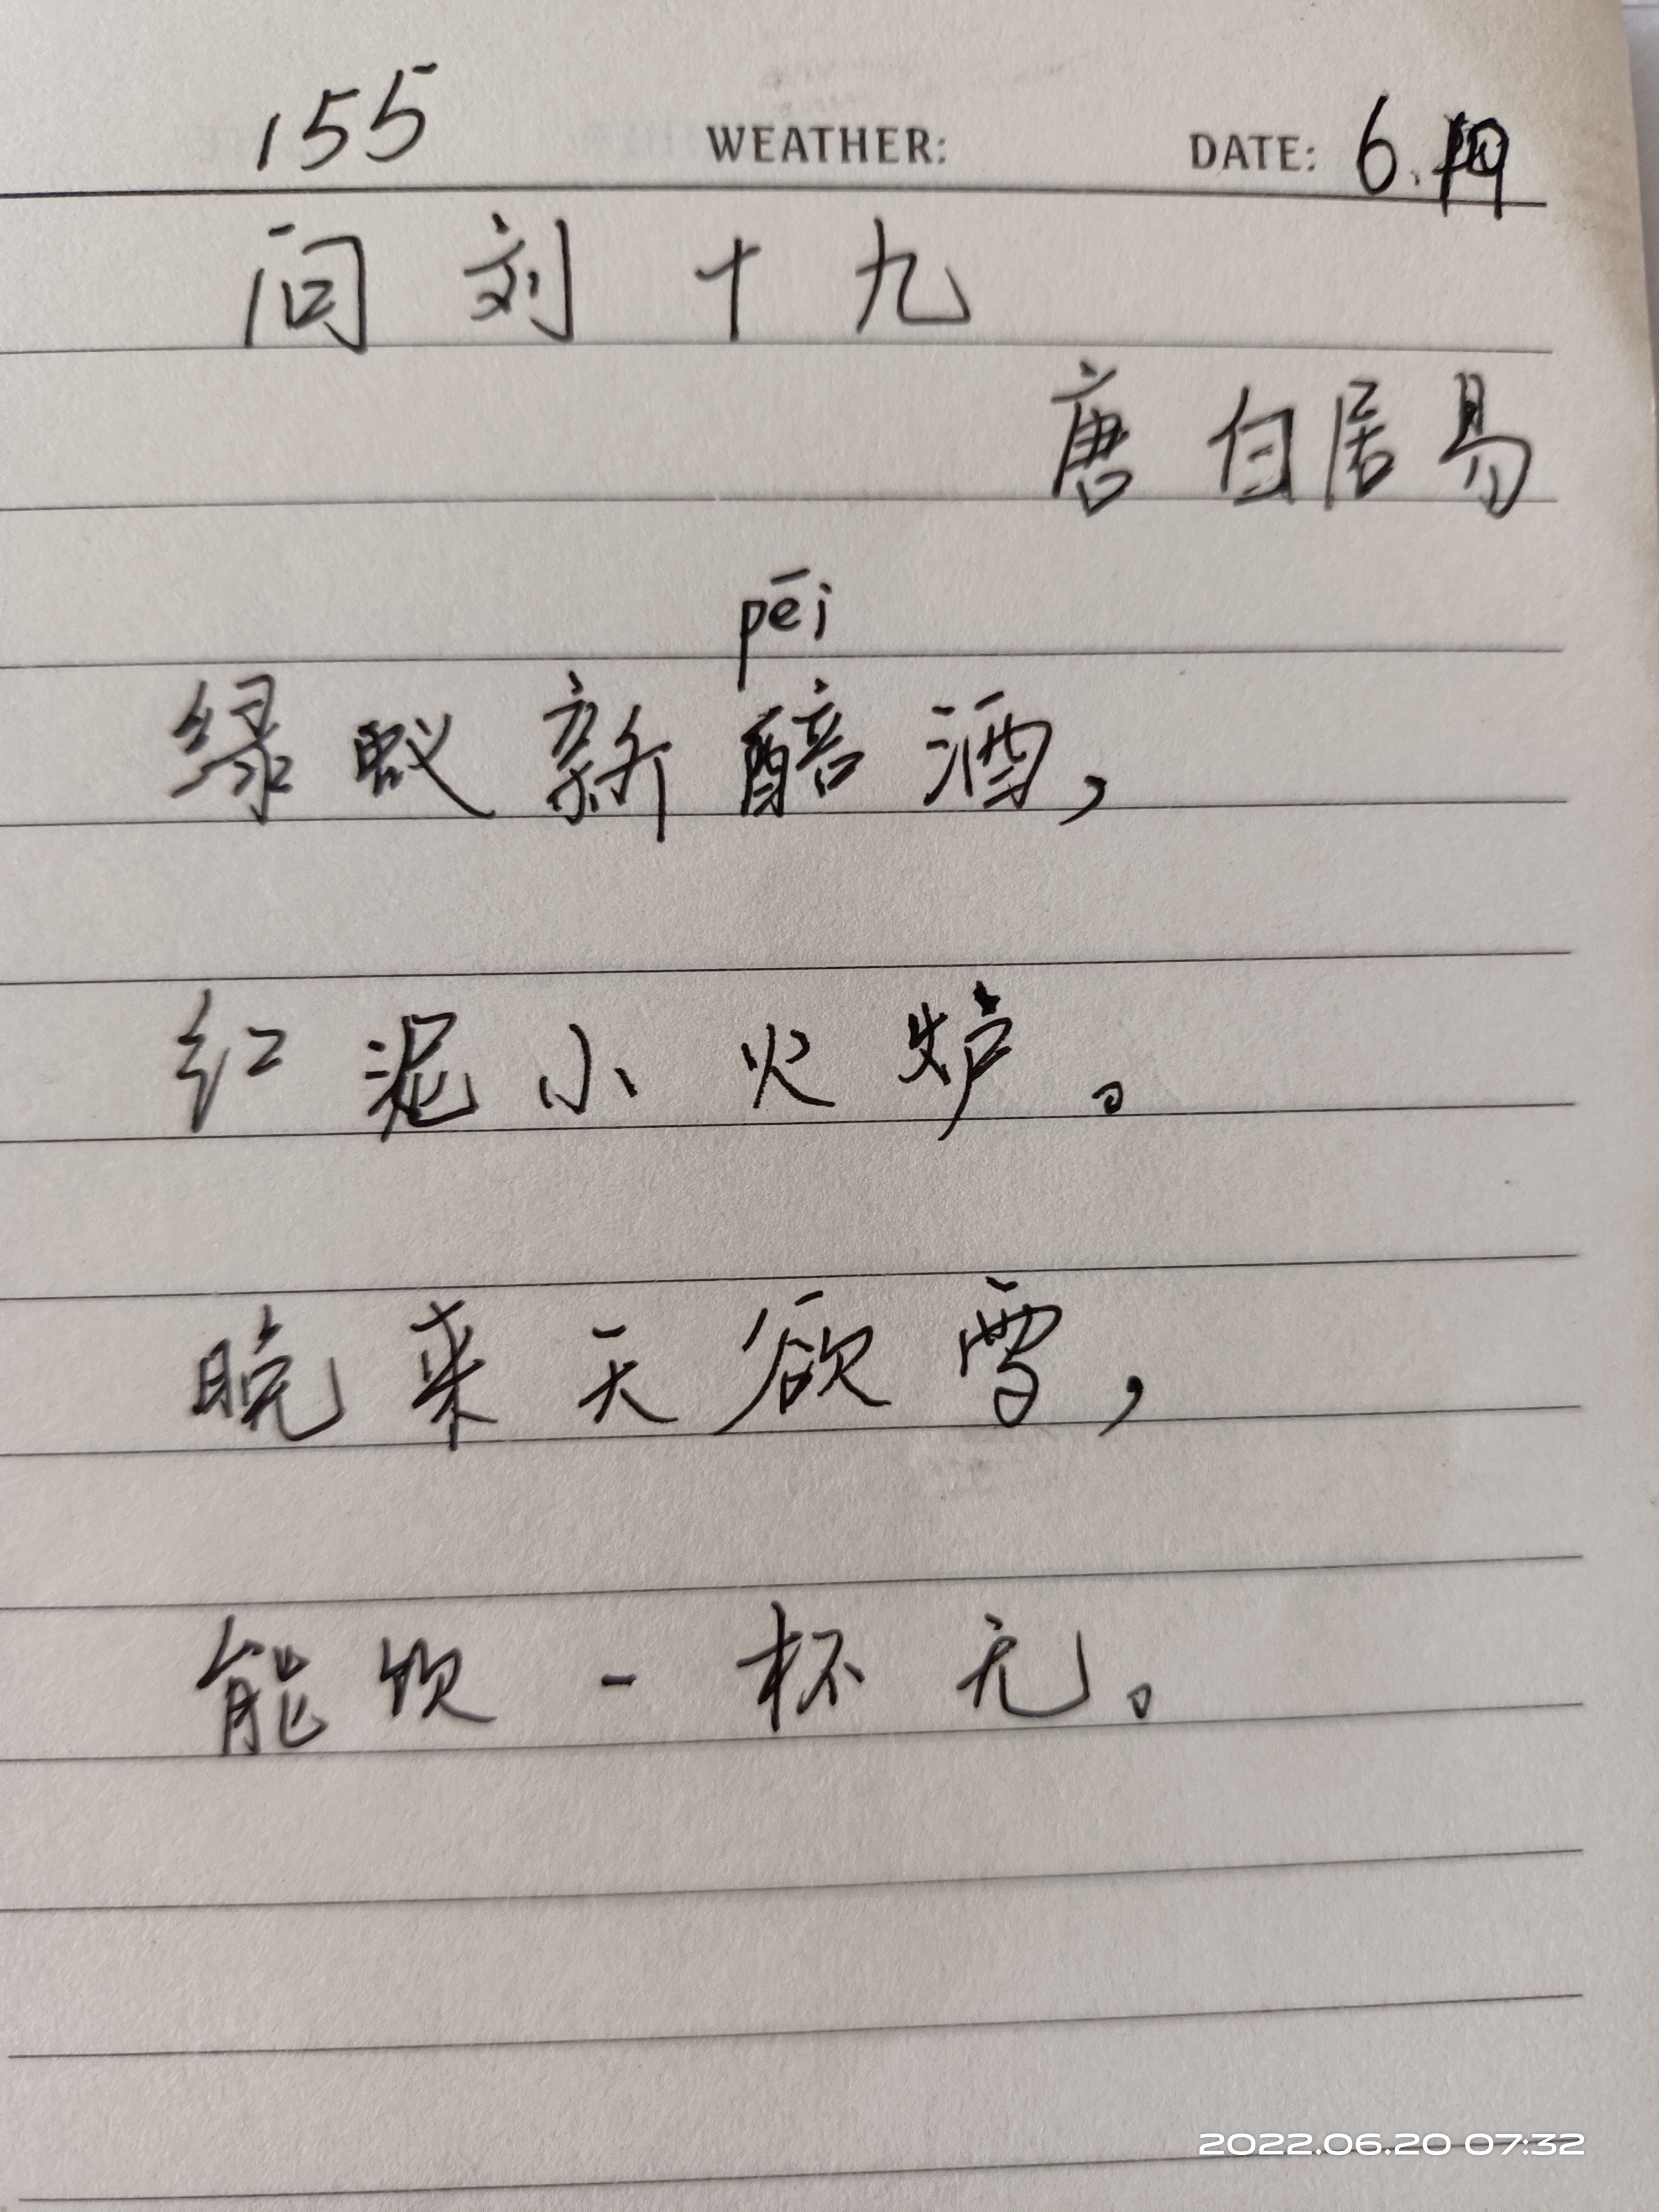 155 WEATHER: DATE: 6.19
问刘十九
唐 白居易
pēi
绿蚁新醅酒，
红泥小火炉。
晚来天欲雪，
能饮一杯无。
2022.06.20 07:32